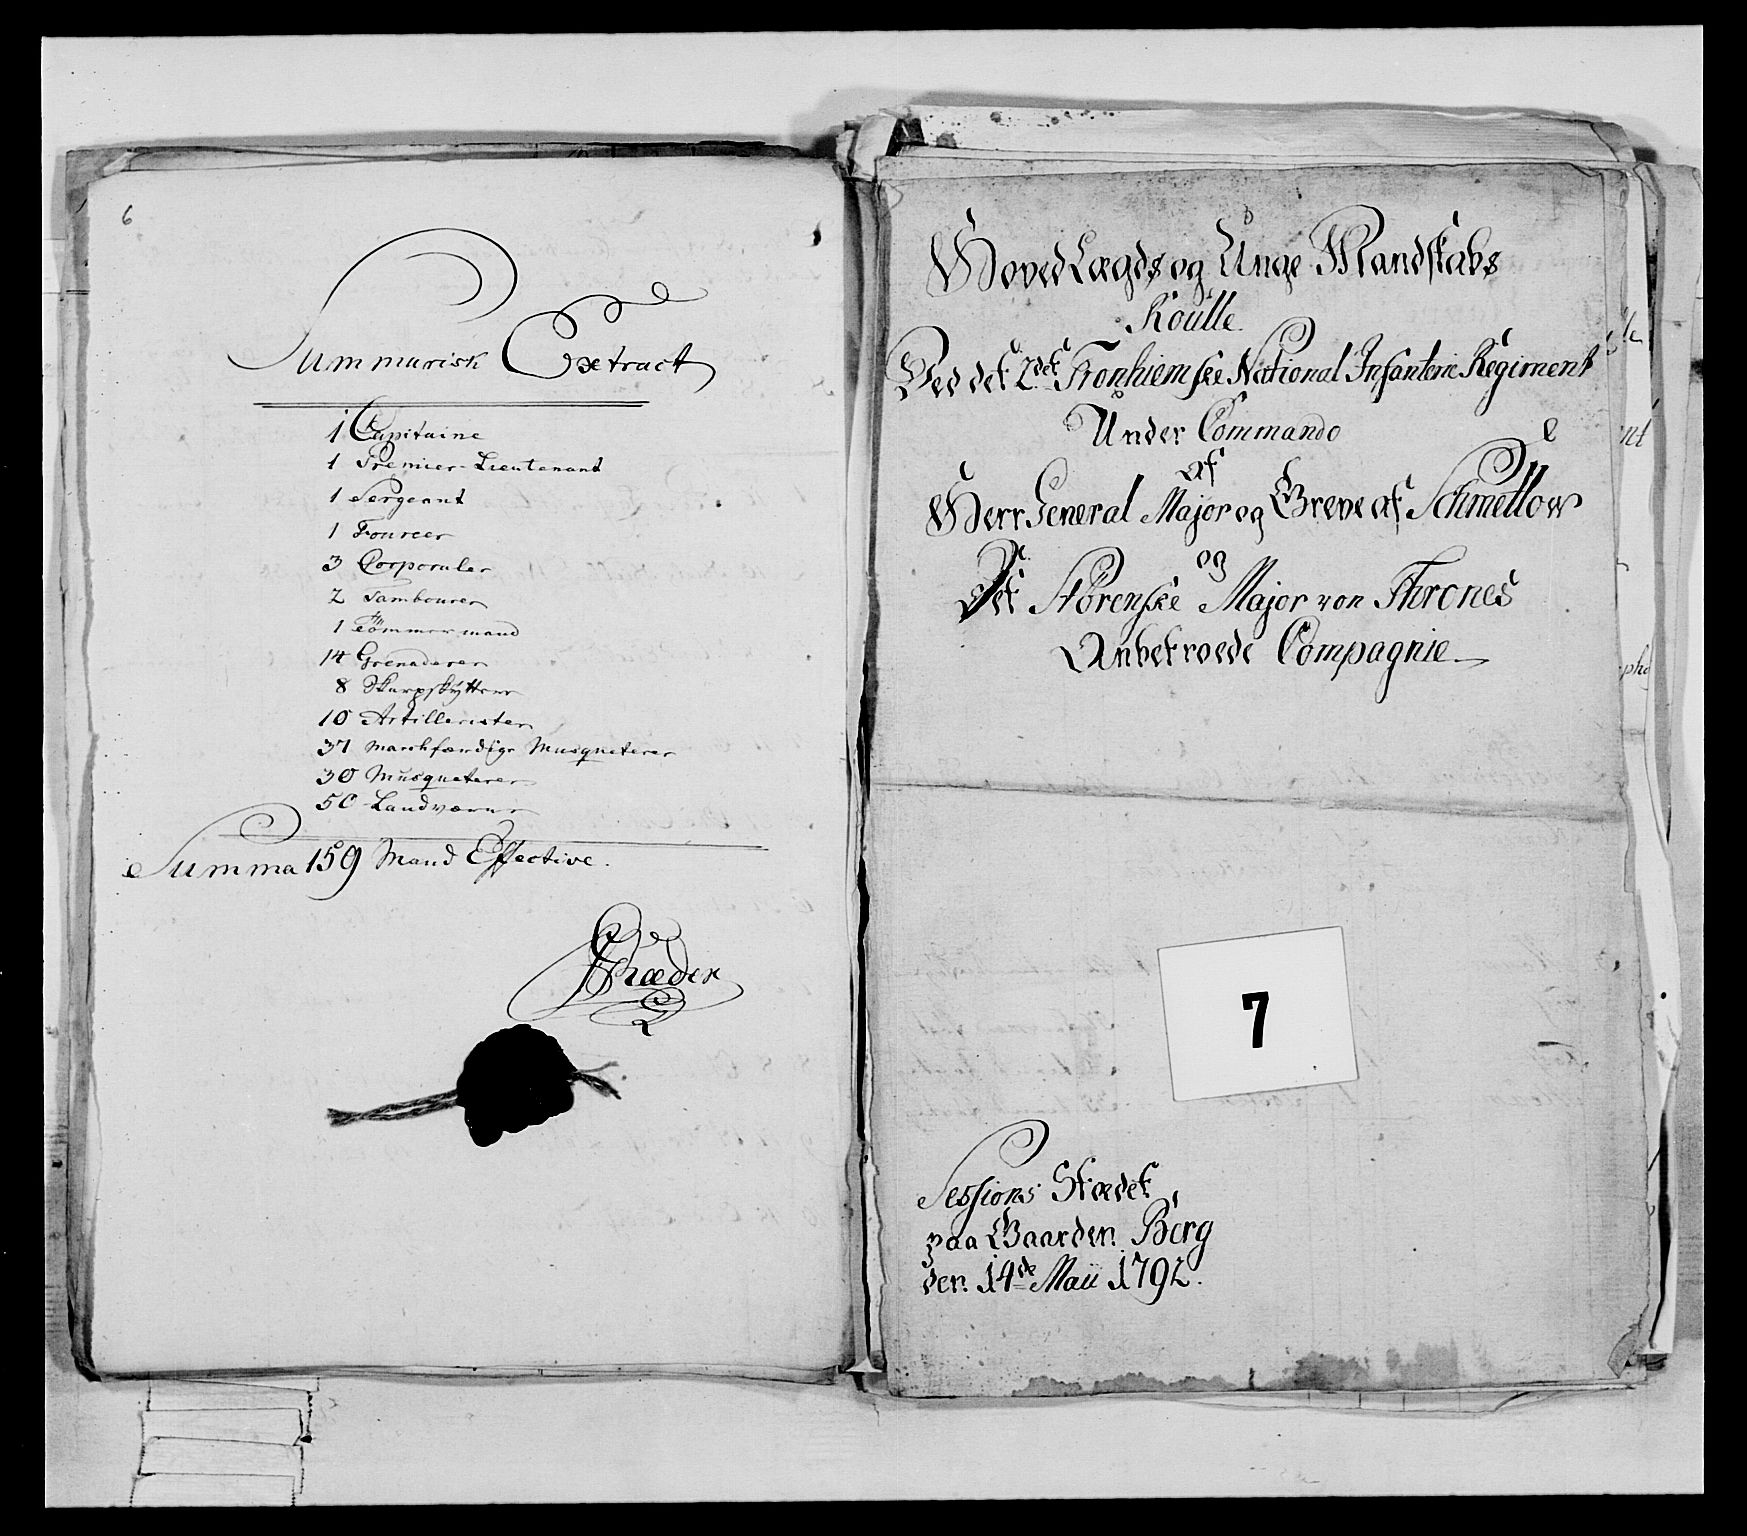 6
Summarisk Extract
1 Capitaine
1 Premier-Lieutenant
1 Sergeant
1 Foureer
3 Corporaler
2 Tambourer
1 Tömmermand
14 Grenaderer
8 Skarpskÿtter
10 Artillerister
37 Marchfærdige Musqueterer
30 Musqueterer
50 Landværn
Summa 159 Mand Effective.
Ræder
Hoved Lægds og Unge Mandskabs
Roulle
Ved det 2det Tronhiemske National Infanterie Regiment
Under Commando
Af
Herr General Major og Greve af Schmettow
og
Det Störenske Major von Thrones
Anbetroede Compagnie
7
Sessions Stædet
paa Gaarden Berg
den 14de Maii 1792.